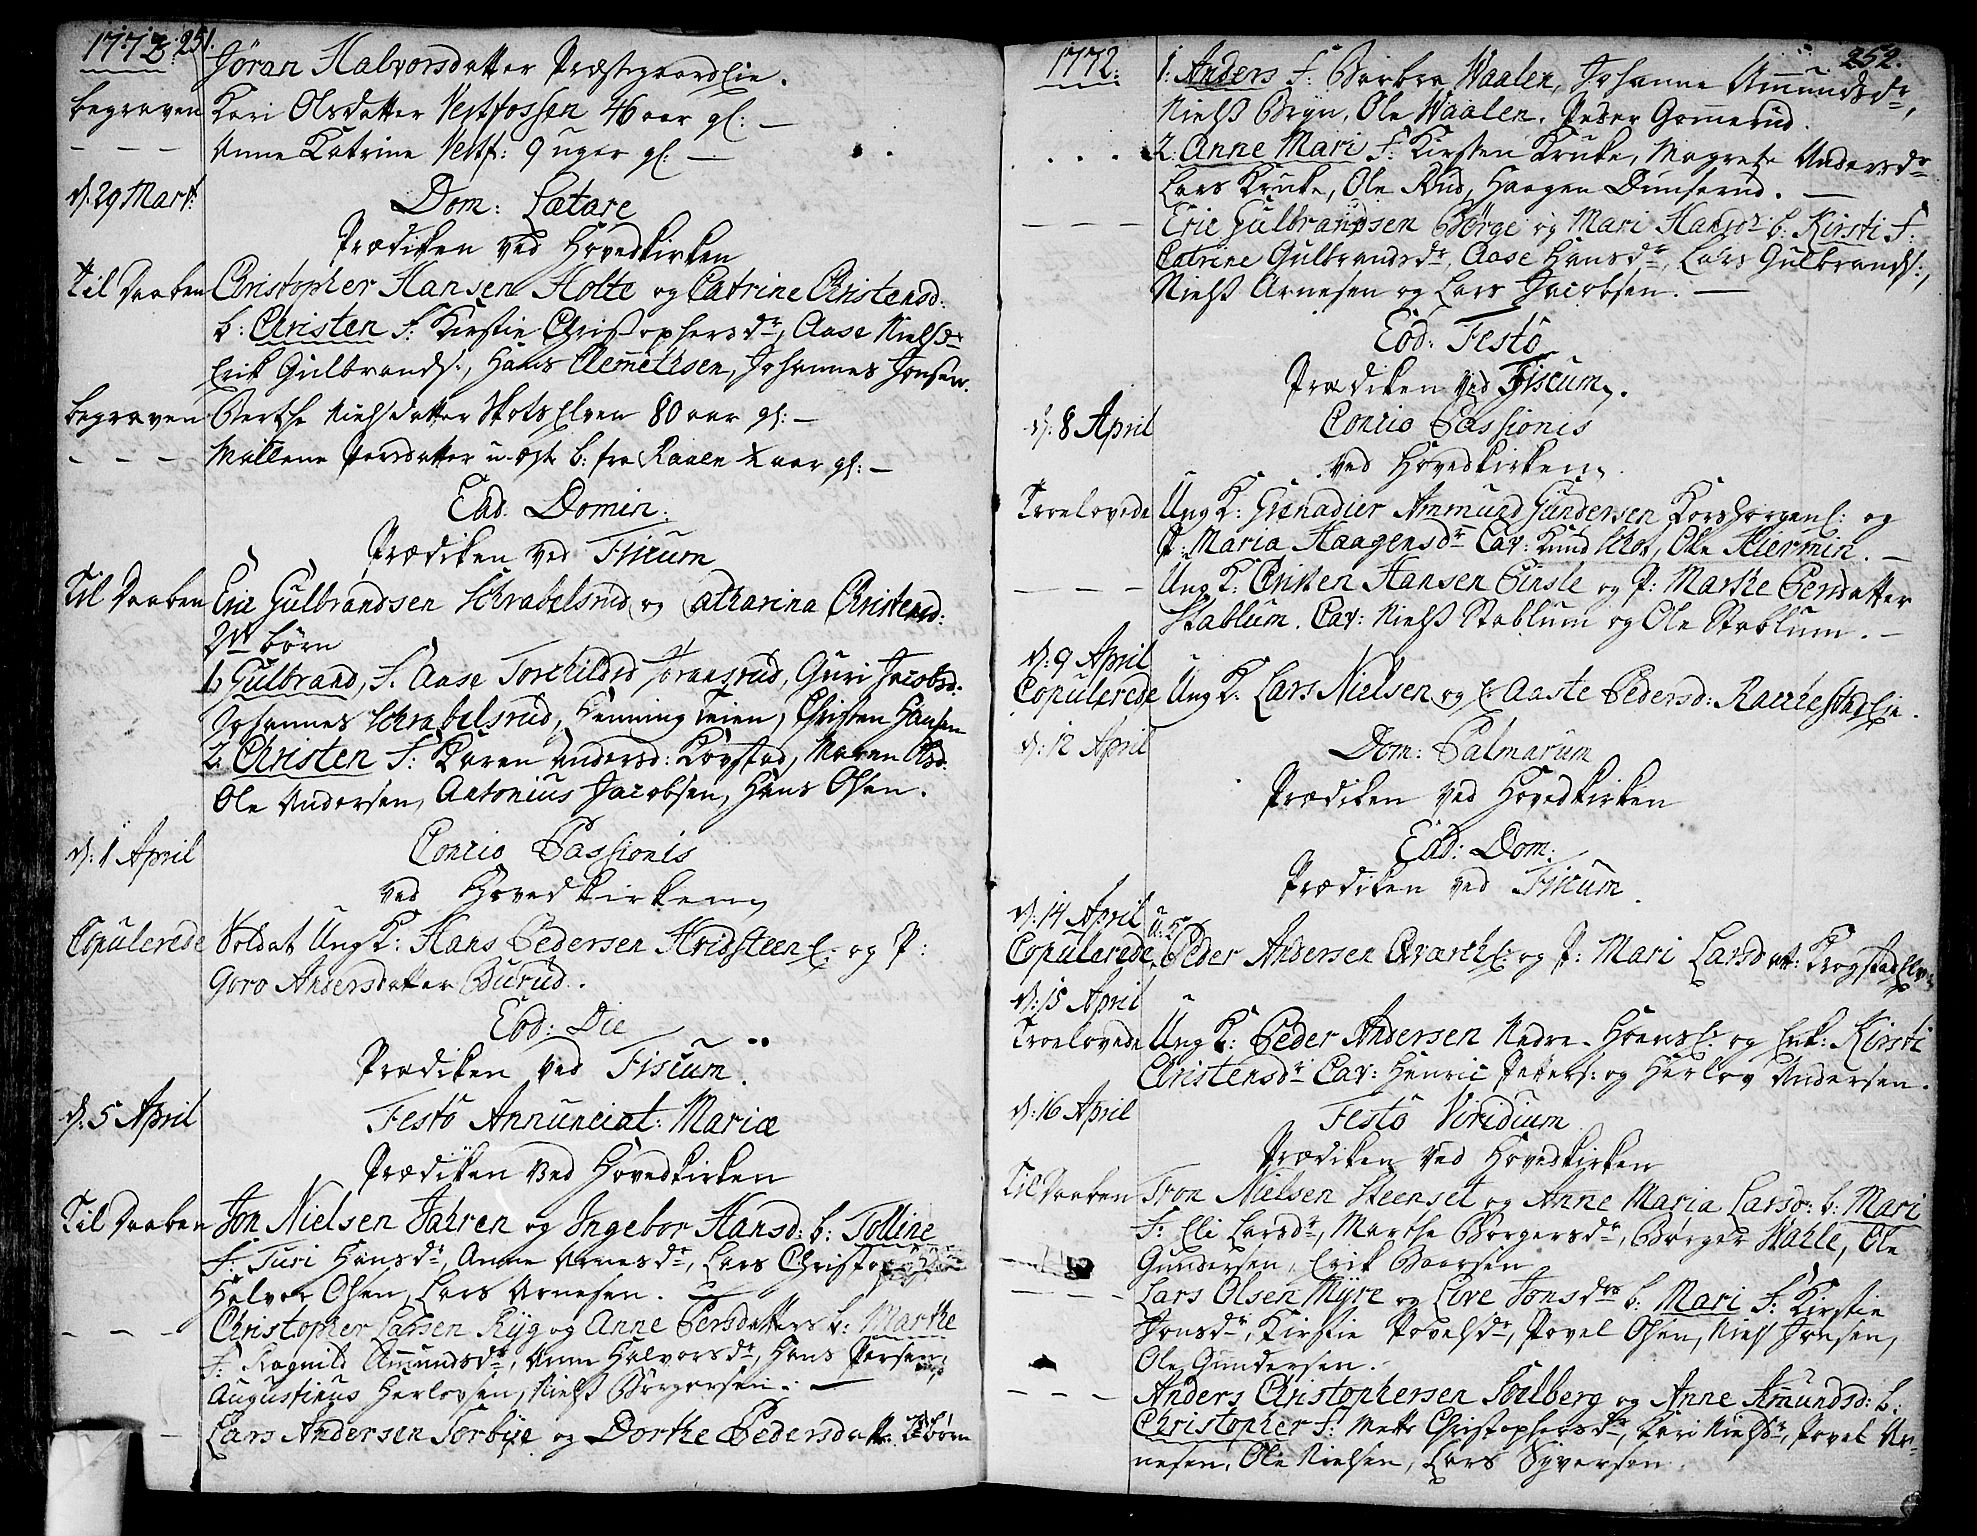 1772. 251.
Jøran Halvorsdatter Præstegaardseie.
begraven Kari Olsdatter Vestfossen 46 aar gl: —
— — — Anne Catrine Vestf: 9 uger gl: —
d. 29 Mart: Dom: Lætare
Prædiken ved Hovedkirken
Til Daaben Christopher Hansen Holte og Catrine Christensd:
b: Christen F: Kirstie Christophersdr, Aase Nielsdr
Erik Gulbrands:, Hans Clemetsen, Johannes Jonsen.
begraven Berthe Nielsdatter Skotselven 80 aar gl: —
— — — Mallene Persdatter u-ægt b: fra Raaen aar gl: —
Ead. Domin:
Prædiken ved Fiscum
Til Daaben Eric Gulbrandsen Schrabelsrud og Catharina Christensd:
børn
1. Gulbrand, F. Aase Torchildsd Jørnesrud, Guri Jacobsd:
Johannes Schrabelsrud, Henning Teien, Christen Hansen
2. Christen F: Karen Andersd: Kopstad, Maren Olsd:
Ole Andersen, Antonius Jacobsen, Hans Olsen.
d: 1 April Concio Passionis
ved Hovedkirken
Copulerede Soldat Ung K: Hans Pedersen Hvidsteen E: og P:
Goro Andersdatter Burud.
Eod: Die
Prædiken ved Fiscum.
d: 5 April Festo Annunciat: Mariæ
Prædiken ved Hovedkirken
Til Daaben Jon Nielsen Jahren og Ingebor Hansd: b: Tolline
F: Turi Hansdr, Anne Arnesdr, Lars
Halvor Olsen, Lars Arnesen. —
— — — Christopher Larsen Ryg og Anne Persdatters b: Marthe
F: Ragnild Amundsdr, Anne Halvorsdr, Hans Persen,
Augustinus Herlovsen, Niels Børgersen. —
— Lars Andersen Sorbye og Dorthe Pedersdatter børn
1772. 252.
1: Anders F: Barbra Waalen, Johanne Amundsdr,
Niels Bryn, Ole Waalen, Peder Gommerud.
2. Anne Mari F: Kirsten Kruke, Magrete Andersdr
Lars Kruke, Ole Rud, Haagen Dunserud. —
— — — Eric Gulbrandsen Børge og Mari Hansdr b: Kirsti F:
Catrine Gulbrandsdr, Aase Hansdr, Lars Gulbrands:,
Niels Arnesen og Lars Jacobsen. —
Eod: Festo
Prædiken ved Fiscum.
d: 8 April Concio Passionis
ved Hovedkirken
Troelovede Ung K: Grenadier Ammund Gundersen E: og
P: Maria Haagensdr Cav: Knud , Ole Skiermin. —
— — — Ung K: Christen Hansen Einsle og P: Marthe Persdatter
Stablum. Cav: Niels Stablum og Ole Stablum. —
d: 9 April
Copulerede Ung K: Lars Nielsen og E Aaste Pedersd:
d: 12 April Dom: Palmarum
Prædiken ved Hovedkirken
Ead: Dom:
Prædiken ved Fiscum.
d: 14 April
Copulerede Peder Andersen E: og P: Mari Larsdatt:
d: 15 April
Troelovede Ung K: Peder Andersen Nedre-Hoens E: og Enk: Kirsti
Christensdr Cav: Henric Peters: og Herlov Andersen.
d: 16 April Festo Viridium
Prædiken ved Hovedkirken
Til Daaben Tron Nielsen Steenset og Anne Maria Larsd: b: Mari
F: Eli Larsdr, Marthe Børgersdr, Børger Kahle, Ole
Gundersen, Erik Baarsen
— — — Lars Olsen Myre og Live Jonsdrs b: Mari F: Kirstie
Jonsdr, Kirstie Povelsdr, Povel Olsen, Niels Jonsen,
Ole Gundersen.
— — — Anders Christophersen Soelberg og Anne Amundsd: b:
Christopher F: Mette Christophersdr, Kari Nielsdr, Povel Ar-
nesen, Ole Nielsen, Lars Syversen.